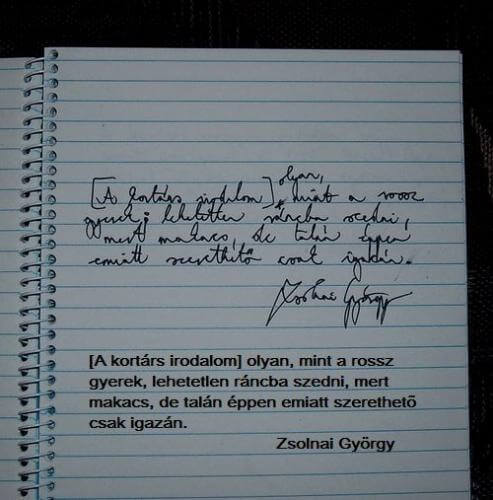 olyan,
[A kortárs irodalom], mint a rossz
gyerek, lehetetlen ráncba szedni,
mert makacs, de talán éppen
emiatt szerethető csak igazán.
Zsolnai György
[A kortárs irodalom] olyan, mint a rossz
gyerek, lehetetlen ráncba szedni, mert
makacs, de talán éppen emiatt szerethető
csak igazán.
Zsolnai György